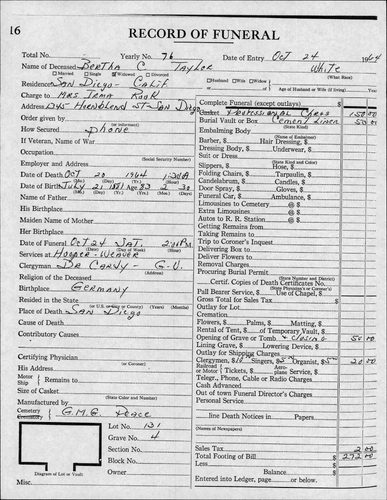 16
RECORD OF FUNERAL
Total No. Yearly No. 76 Date of Entry Oct 24 1964
Name of Deceased Bertha C Taylor White
(What Race)
Married Single Widowed Divorced
Residence San Diego - Calif
Husband Wife Widow of Age of Husband or Wife (if living) Yrs.
Charge to Mrs Irma Rook
Address 1745 Hornblend St - San Diego
Order given by
How Secured Phone
If Veteran, Name of War
Occupation
(Social Security Number)
Employer and Address
Date of Death Oct 20 1964 1:20 A
(Hour)
Date of Birth July 21 1881 Age 83 2 30
Name of Father
His Birthplace
Maiden Name of Mother
Her Birthplace
Date of Funeral Oct 24 Sat. 2:00 PM
(Date) (Day of Week) (Hour)
Services at Hooper - Weaver
Clergyman Dr Carvy - G.V.
(Address)
Religion of the Deceased
Birthplace Germany
Resided in the State (or U.S. or City or County) (Years) (Months)
Place of Death San Diego
Cause of Death
Contributory Causes
Certifying Physician
(or Coroner)
His Address
Motor
Ship Remains to
Size of Casket
(State Color and Number)
Manufactured by
Cemetery
G.M.G. Peace
Lot No. 131
Grave No. 4
Section No.
Block No.
Owner
Diagram of Lot or Vault
Misc.
Complete Funeral (except outlays)
Casket Professional Care 150 00
Burial Vault or Box Cement Liner 50 00
(State Kind)
Embalming Body
Barber, Hair Dressing,
Dressing Body, Underwear,
Suit or Dress
(State Kind and Color)
Slippers, Hose,
Folding Chairs, Tarpaulin,
Candelabrum, Candles,
Door Spray, Gloves,
Funeral Car, Ambulance,
Limousines to Cemetery @
Extra Limousines @
Autos to R. R. Station @
Getting Remains from
Taking Remains to
Trip to Coroner's Inquest
Delivering Box to
Deliver Flowers to
Removal Charges
Procuring Burial Permit
(State Number and District)
Certif. Copies of Death Certificates No.
(State Physician's or Coroner's)
Pall Bearer Service, Use of Chapel,
Gross Total for Sales Tax
Outlay for Lot
Cremation
Flowers, Palms, Matting,
Rental of Tent, of Temporary Vault,
Opening of Grave or Tomb & Closing 50 00
Lining Grave, Lowering Device,
Outlay for Shipping Charges
Clergymen, 10 Singers, 5 Organist, 5 20 00
Railroad
or Motor Tickets, Aeroplane Service,
Telegr., Phone, Cable or Radio Charges
Cash Advanced
Out of town Funeral Director's Charges
Personal Service
line Death Notices in Papers
(Names of Newspapers)
Sales Tax 2 00
Total Footing of Bill 272 00
Less
Balance
Entered into Ledger, page or below.